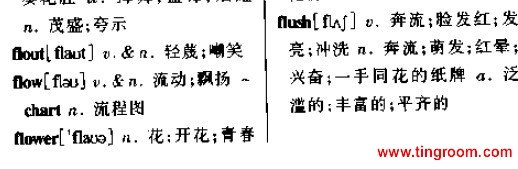 n. 茂盛;夸示
flout[flaut] v. & n. 轻蔑;嘲笑
flow[fləu] v. & n. 流动;飘扬 ~
chart n. 流程图
flower[ˈflauə] n. 花;开花;青春
flush[flʌʃ] v. 奔流;脸发红;发
亮;冲洗 n. 奔流;萌发;红晕;
兴奋;一手同花的纸牌 a. 泛
滥的;丰富的;平齐的
www.tingroom.com